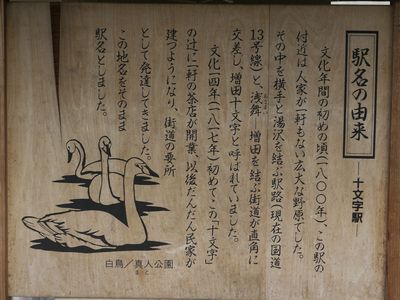 駅名の由来
十文字駅
文化年間の初めの頃(一八〇〇年)、この駅の
付近は人家が一軒もない広大な野原でした。
その中を横手と湯沢を結ぶ駅路(現在の国道
13号線)と、浅舞―増田を結ぶ街道が直角に
交差し、増田十文字と呼ばれていました。
文化一四年(一八一七年)初めてこの「十文字」
の辻に一軒の茶店が開業、以後だんだん民家が
建つようになり、街道の要所
として発達してきました。
この地名をそのまま
駅名としました。
白鳥/真人公園
まと